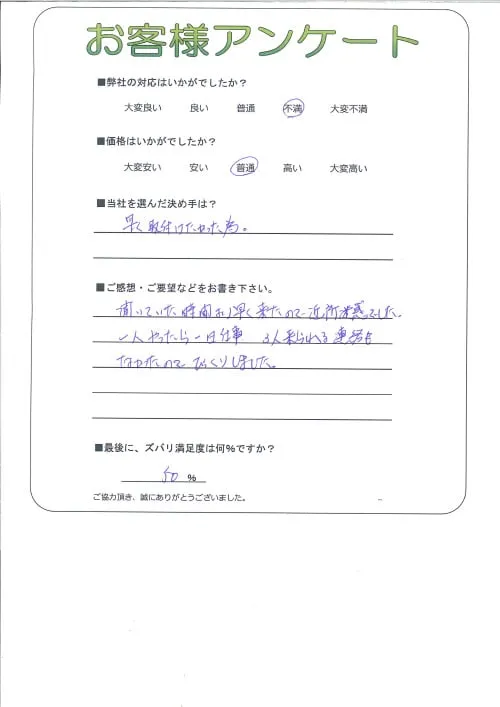 お客様アンケート
■弊社の対応はいかがでしたか？
大変良い 良い 普通 不満 大変不満
■価格はいかがでしたか？
大変安い 安い 普通 高い 大変高い
■当社を選んだ決め手は？
早く取付けたかった為。
■ご感想・ご要望などをお書き下さい。
聞いていた時間より早く来たので近所迷惑でした。
一人やったら一日仕事 3人来られる連絡も
なかったのでびっくりしました。
■最後に、ズバリ満足度は何%ですか？
50 %
ご協力頂き、誠にありがとうございました。